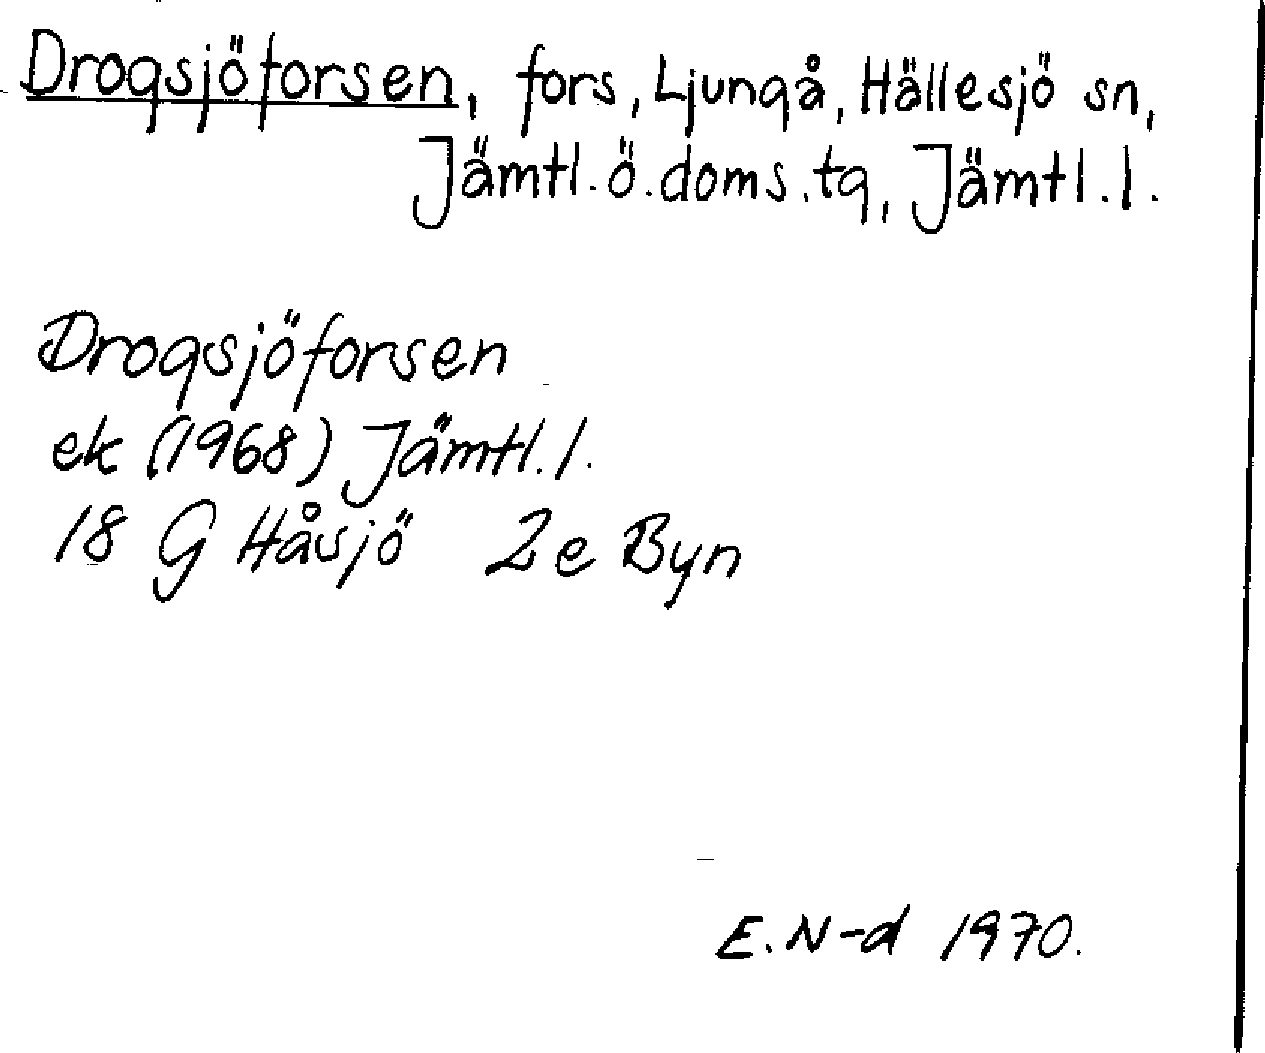 Drogsjöforsen, fors, Ljungå, Hällesjö sn,
Jämtl. ö. doms. tg, Jämtl. l.
Drogsjöforsen
ek (1968) Jämtl. l.
18 G Håsjö 2e Byn
E. N-d 1970.